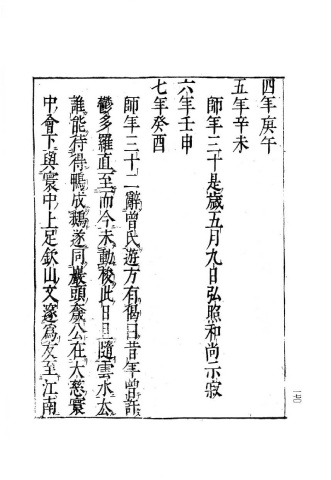 四年庚午
五年辛未
師年三十是歲五月九日弘照和尚示寂
六年壬申
七年癸酉
師年三十二辭曾氏遊方有偈曰昔年曾許
鬱多羅直至而今未動梭此日且隨雲水去
誰能待得鴨成鵝遂同巖頭奯公在大慈寰
中會下與寰中上足欽山文邃為友至江南